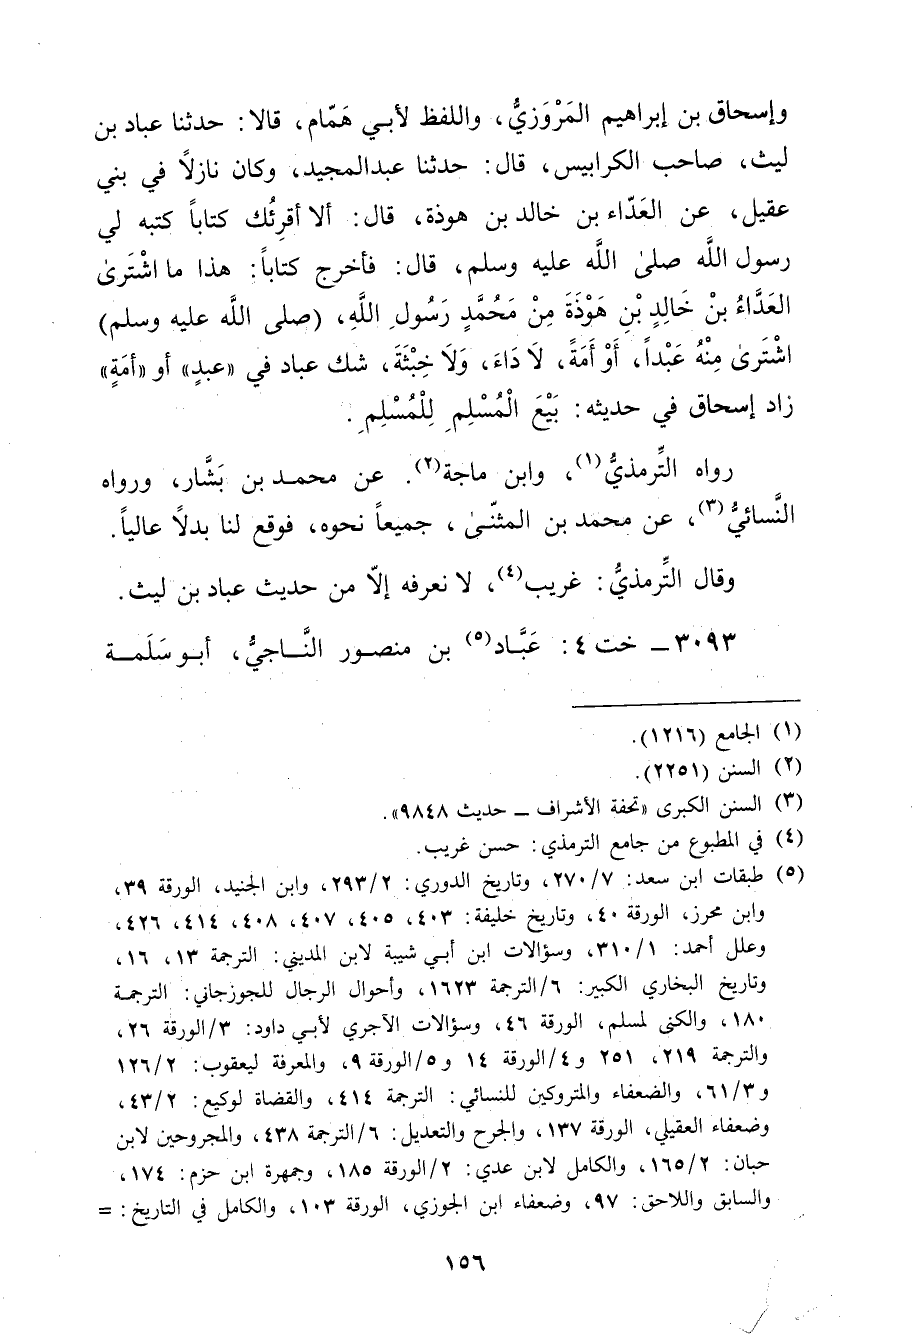 وإسحاق بن إبراهيم المَرْوَزيُّ، واللفظ لأبي هَمّام، قالا: حدثنا عباد بن
ليث، صاحب الكرابيس، قال: حدثنا عبدالمجيد، وكان نازلاً في بني
عقيل، عن العَدّاء بن خالد بن هوذة، قال: ألا أقرِئُك كتاباً كتبه لي
رسول اللَّه صلىٰ اللَّه عليه وسلم، قال: فأخرج كتاباً: هذا ما اشْتَرىٰ
العَدَّاءُ بنْ خَالِدِ بْنِ هَوْذَةَ مِنْ مَحُمَّدٍ رَسُولِ اللَّهِ، (صلى اللَّه عليه وسلم)
اشْتَرىٰ مِنْهُ عَبْداً، أَوْ أَمَةً، لَا دَاءَ، وَلَا خِبْثَةَ، شك عباد في «عبدٍ» أو «أمَةٍ»
زاد إسحاق في حديثه: بَيْعَ الْمُسْلِمِ لِلْمُسْلِمِ.
رواه التِّرمذيُّ(١)، وابن ماجة(٢). عن محمد بن بَشَّار، ورواه
النَّسائيُّ(٣)، عن محمد بن المثنّىٰ، جميعاً نحوه، فوقع لنا بدلاً عالياً.
وقال التِّرمذيُّ: غريب(٤)، لا نعرفه إلّا من حديث عباد بن ليث.
٣٠٩٣ ــ خت ٤: عَبَّاد(٥) بن منصور النَّاجيُّ، أبو سَلَمة
(١) الجامع (١٢١٦).
(٢) السنن (٢٢٥١).
(٣) السنن الكبرى «تحفة الأشراف ــ حديث ٩٨٤٨».
(٤) في المطبوع من جامع الترمذي: حسن غريب.
(٥) طبقات ابن سعد: ٧/ ٢٧٠، وتاريخ الدوري: ٢/ ٢٩٣، وابن الجنيد، الورقة ٣٩،
وابن محرز، الورقة ٤٠، وتاريخ خليفة: ٤٠٣، ٤٠٥، ٤٠٧، ٤٠٨، ٤١٤، ٤٢٦،
وعلل أحمد: ١/ ٣١٠، وسؤالات ابن أبي شيبة لابن المديني: الترجمة ١٣، ١٦،
وتاريخ البخاري الكبير: ٦/الترجمة ١٦٢٣، وأحوال الرجال للجوزجاني: الترجمة
١٨٠، والكنى لمسلم، الورقة ٤٦، وسؤالات الآجري لأبي داود: ٣/الورقة ٢٦،
والترجمة ٢١٩، ٢٥١ و٤/الورقة ١٤ و٥/الورقة ٩، والمعرفة ليعقوب: ٢/ ١٢٦
و٣/ ٦١، والضعفاء والمتروكين للنسائي: الترجمة ٤١٤، والقضاة لوكيع: ٢/ ٤٣،
وضعفاء العقيلي، الورقة ١٣٧، والجرح والتعديل: ٦/الترجمة ٤٣٨، والمجروحين لابن
حبان: ٢/ ١٦٥، والكامل لابن عدي: ٢/الورقة ١٨٥، وجمهرة ابن حزم: ١٧٤،
والسابق واللاحق: ٩٧، وضعفاء ابن الجوزي، الورقة ١٠٣، والكامل في التاريخ: =
١٥٦